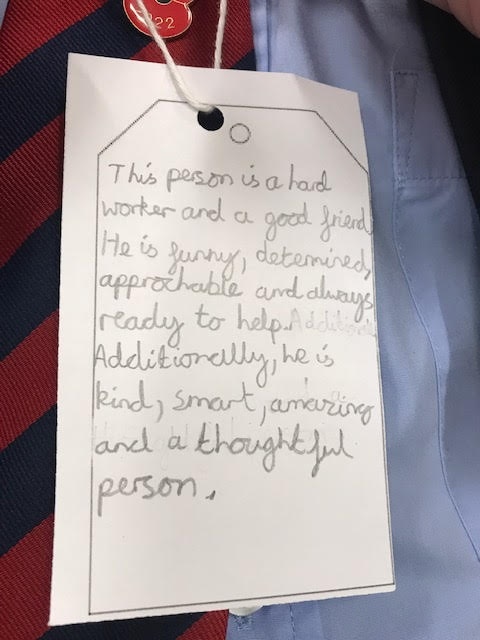 22
This person is a hard
worker and a good friend
He is funny, determined,
approchable and always
ready to help. Additionall
Additionally, he is
kind, smart, amazing
and a thoughtful
person.